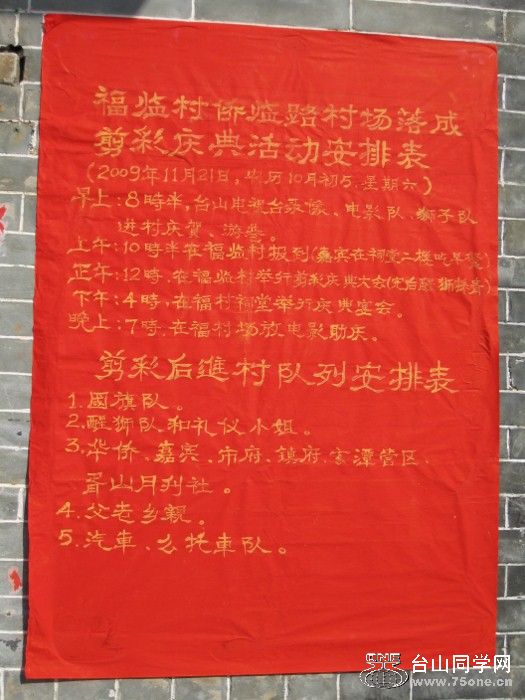 福临村侨临路村场落成
剪彩庆典活动安排表
(2009年11月21日,农历10月初5,星期六)
早上:8時半,台山电视台录像、电影队、狮子队
进村庆贺、游巷。
上午:10時半在福临村报到(嘉宾在祠堂二楼吃早餐)
正午:12時,在福临村举行剪彩庆典大会(完后醒狮採青)
下午:4時,在福村祠堂举行庆典宴会。
晚上:7時,在福村场放电影助庆。
剪彩后進村队列安排表
1.國旗队。
2.醒狮队和礼仪小姐。
3.华侨、嘉宾、市府、鎮府、玄潭管区、
胥山月刋社。
4.父老乡親。
5.汽車、么托車队。
台山同学网
www.75one.cn